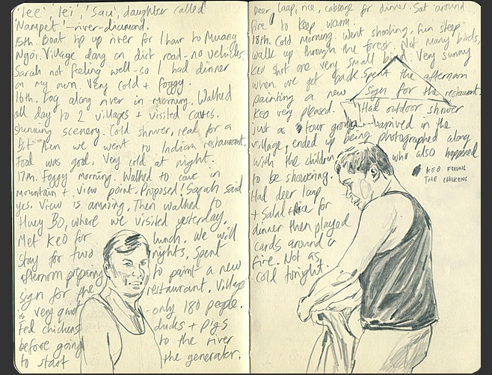 'Lee' 'lei', 'Sau', daughter called
'Nampet' - river-diamond.
15th. Boat trip up river for 1 hour to Muang
Ngoi. Village dang on dirt road. no vehicles
Sarah not feeling well - so I had dinner
on my own. Very cold + foggy.
16th. Fog along river in morning. Walked
all day to 2 villages + visited caves.
Stunning scenery. Cold shower, read for a
bit. then we went to Indian restaurant.
Food was good. Very cold at night.
17th. Foggy morning. Walked to cave in
mountain + view point. Proposed! Sarah said
yes. View is amazing. Then walked to
Huay Bo, where we visited yesterday.
Met KEO for lunch. We will
stay for two nights, spent
afternoon prepping to paint a new
sign for the restaurant. Village
is very quiet only 180 people.
Fed chickens ducks + pigs
before going to the river
to start the generator.
Deer laap, rice, cabbage for dinner. Sat around
fire to keep warm.
18th. Cold morning. Went shooting. Fun steep
walk up through the forest. Not many birds,
Keo shot one very small bird. Very sunny
when we got back. Spent the afternoon
painting a new sign for the restaurant.
Keo very pleased. Had outdoor shower
just as tour group arrived in the
village, ended up being photographed along
with the children who also happened
to be showering.
Had deer laap
+ Salad for
dinner then played
cards around a
fire. Not as
cold tonight.
KEO FEEDING
THE CHICKENS